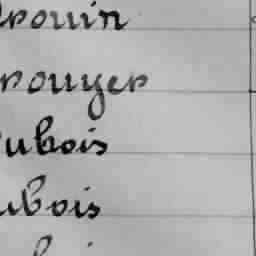 Drouin
rouyer
Dubois
ubois